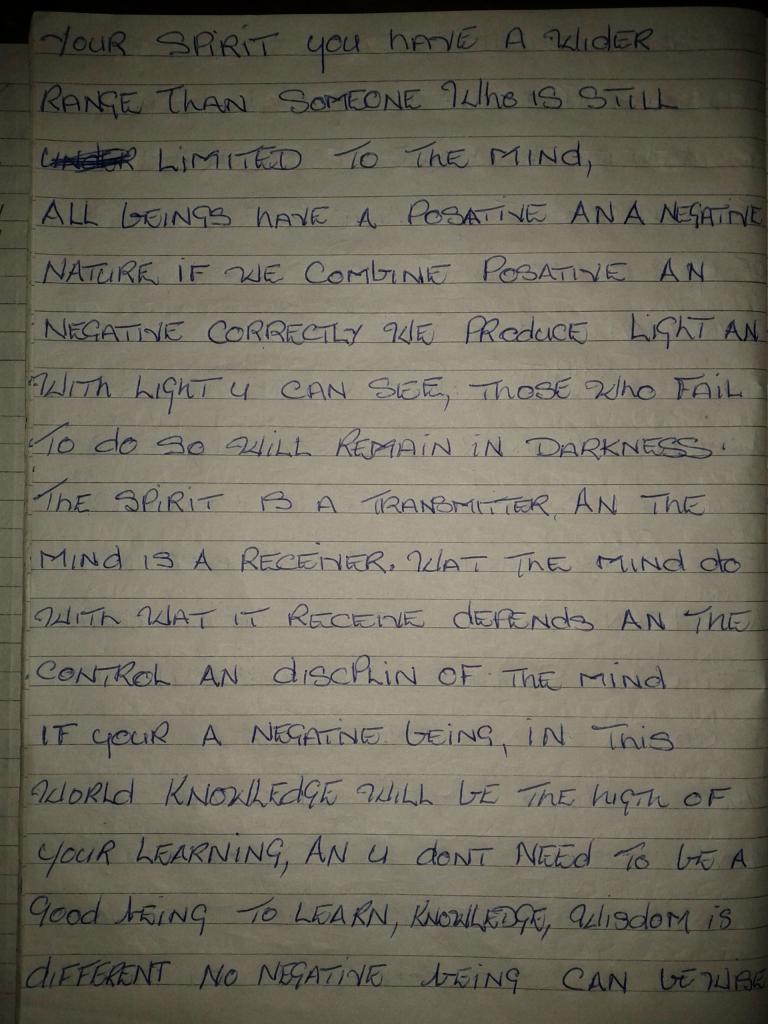 YOUR SPIRIT you HAVE A WIDER
RANGE THAN SOMEONE WHO IS STILL
LIMITED TO THE MIND,
ALL bEINGS HAVE A POSATIVE AN A NEGATIVE
NATURE IF WE COMbINE POSATIVE AN
NEGATIVE CORRECTLY WE PRODUCE LIGHT AN
WITH LIGHT U CAN SEE, THOSE WHO FAIL
TO do SO WILL REMAIN IN DARKNESS.
THE SPIRIT IS A TRANSMITTER, AN THE
MINd IS A RECEIVER. WAT THE MINd do
WITH WAT IT RECEIVE dEPENdS AN THE
CONTROL AN dISCPLIN OF THE MINd
IF yOUR A NEGATIVE bEING, IN THIS
WORLd KNOWLEdGE WILL bE THE HIGTH OF
yOUR LEARNING, AN U dONT NEEd TO bE A
GOOd bEING TO LEARN, KNOWLEdGE, WISdOM IS
dIFFERENT NO NEGATIVE bEING CAN bE WISE